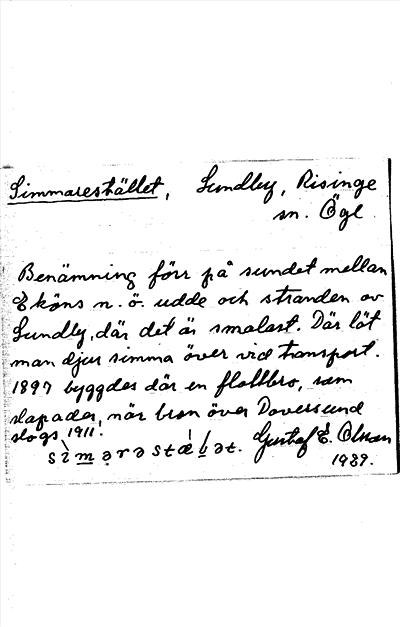 Simmarestället, Sundby, Risinge
sn. Ögl
Benämning förr på sundet mellan
Eköns n.ö. udde och stranden av
Sundby, där det är smalast. Där lät
man djur simma över vid transport.
1897 byggdes där en flottbro, som
slopades, när bron över Doversund
slogs 1911.
Gustaf E. Olsson
1939.